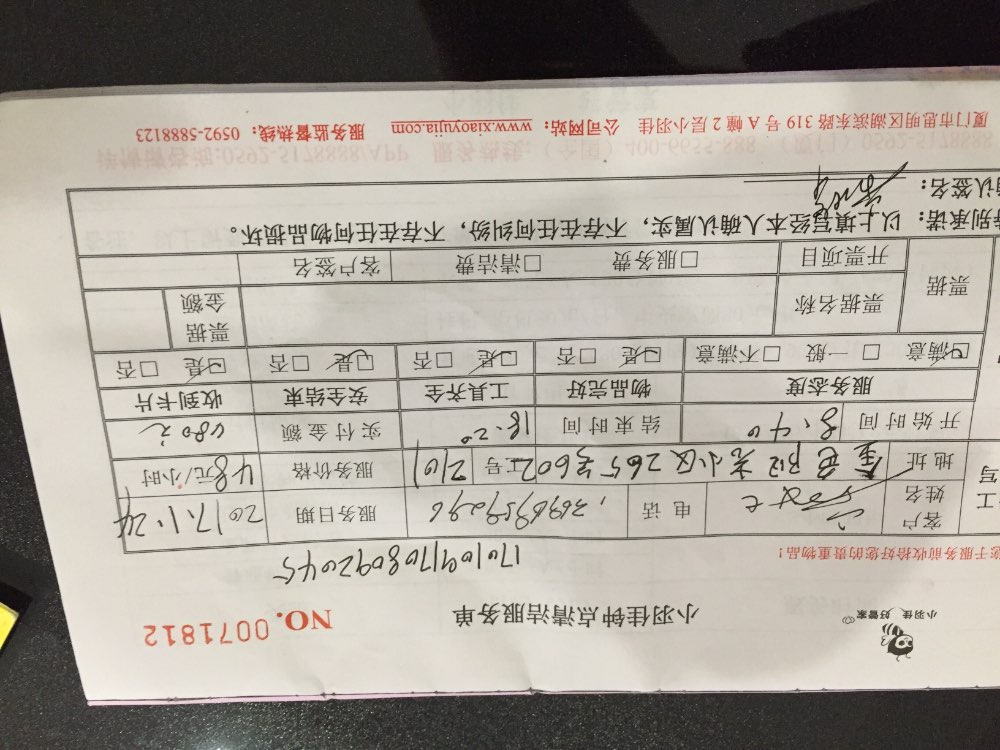 小羽佳 好管家
小羽佳钟点清洁服务单
NO. 0071812
1701091708092045
您于服务前收拾好您的贵重物品!
客户姓名 电话 13696959296 服务日期 2017.1.24
地址 金色阳光小区265号602 工号 2101 服务价格 48元/小时
开始时间 8:40 结束时间 18:20 实付金额 480元
服务态度 物品完好 工具齐全 安全结束 收到卡片
☑满意 □一般 □不满意 ☑是 □否 ☑是 □否 ☑是 □否 ☑是 □否
票据 票据名称 票据金额
开票项目 □服务费 □清洁费 客户签名
特别承诺:以上填写经本人确认属实,不存在任何纠纷,不存在任何物品损坏。
确认签名:
厦门市思明区湖滨东路319号A幢2层小羽佳 公司网站:www.xiaoyujia.com 服务监督热线:0592-5888123